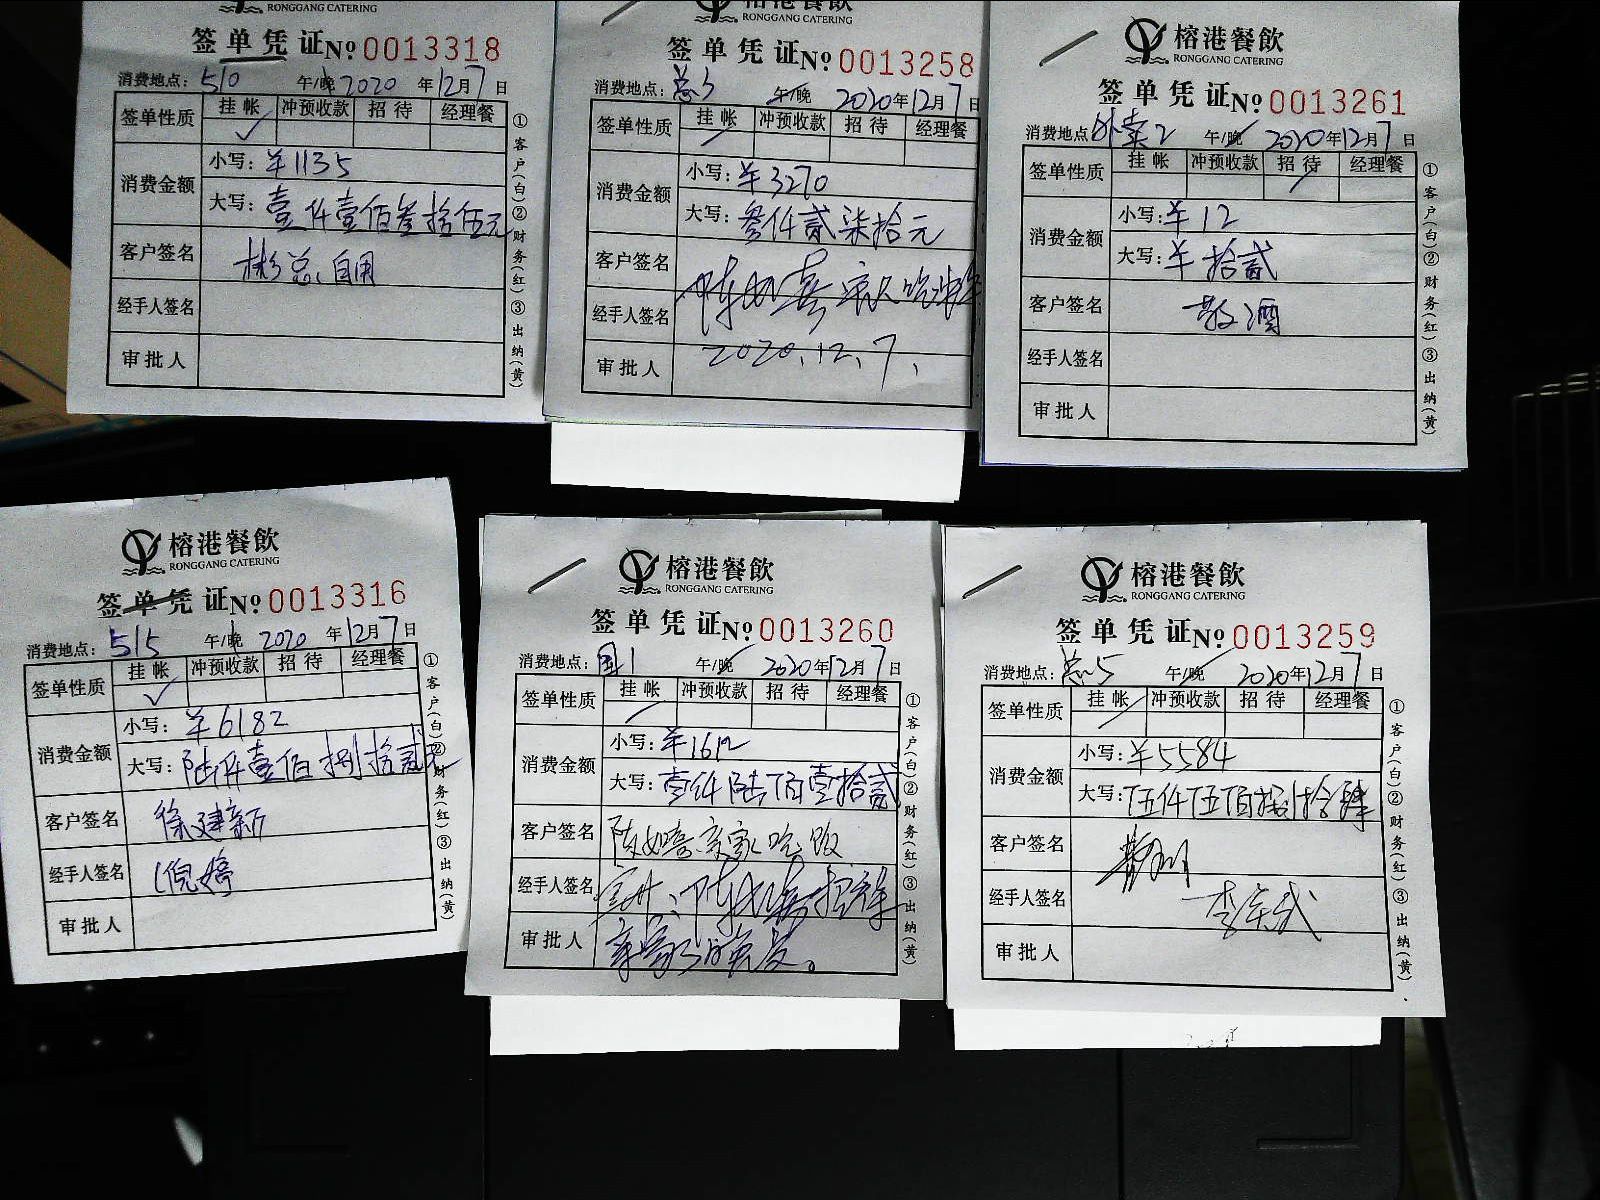 RONGGANG CATERING
签单凭证 № 0013318
消费地点: 510 午/晚 2020 年 12月 7 日
签单性质 挂帐 冲预收款 招待 经理餐
消费金额 小写: ¥1135
大写: 壹仟壹佰叁拾伍元
客户签名 彬总 自用
经手人签名
审批人
①客户(白)②财务(红)③出纳(黄)
RONGGANG CATERING
签单凭证 № 0013258
消费地点: 总3 午/晚 2020年12月7日
签单性质 挂帐 冲预收款 招待 经理餐
消费金额 小写: ¥3270
大写: 叁仟贰柒拾元
客户签名
经手人签名
审批人 2020.12.7.
榕港餐飲
RONGGANG CATERING
签单凭证 № 0013261
消费地点 外卖2 午/晚 2020年12月7日
签单性质 挂帐 冲预收款 招待 经理餐
消费金额 小写: ¥12
大写: ¥拾贰
客户签名 散酒
经手人签名
审批人
①客户(白)②财务(红)③出纳(黄)
榕港餐飲
RONGGANG CATERING
签单凭证 № 0013316
消费地点: 515 午/晚 2020 年12月7日
签单性质 挂帐 冲预收款 招待 经理餐
消费金额 小写: ¥6182
大写: 陆仟壹佰捌拾贰元
客户签名 徐建新
经手人签名 倪婷
审批人
①客户(白)②财务(红)③出纳(黄)
榕港餐飲
RONGGANG CATERING
签单凭证 № 0013260
消费地点: 国1 午/晚 2020年12月7日
签单性质 挂帐 冲预收款 招待 经理餐
消费金额 小写: ¥1612
大写: 壹仟陆佰壹拾贰
客户签名 吃饭
经手人签名
审批人
①客户(白)②财务(红)③出纳(黄)
榕港餐飲
RONGGANG CATERING
签单凭证 № 0013259
消费地点: 总5 午/晚 2020年12月7日
签单性质 挂帐 冲预收款 招待 经理餐
消费金额 小写: ¥5584
大写: 伍仟伍佰捌拾肆
客户签名
经手人签名
审批人
①客户(白)②财务(红)③出纳(黄)